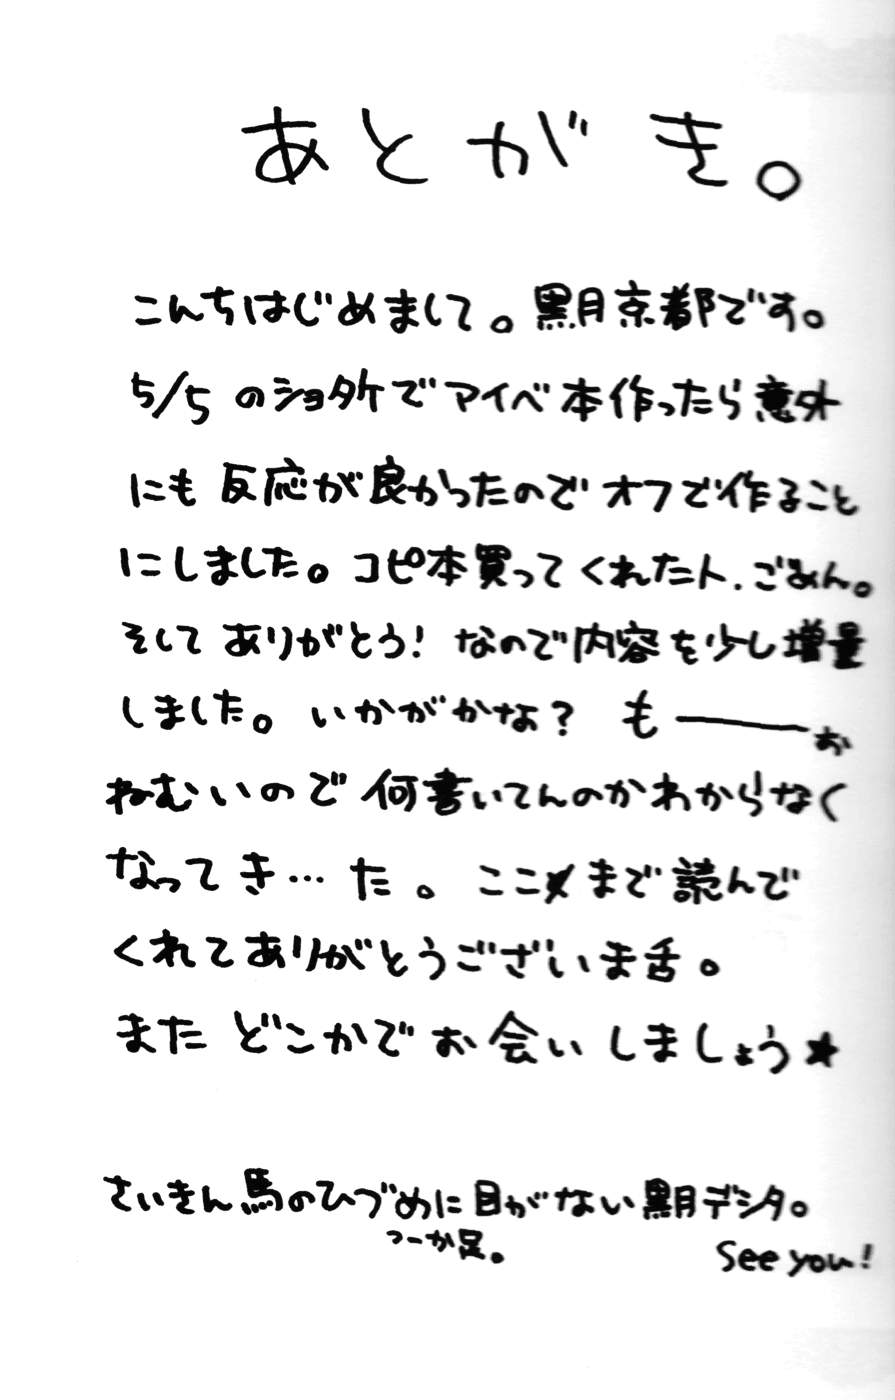 あとがき。
こんちはじめまして。黒月京都です。
5/5 のショタケでマイベ本作ったら意外
にも 反応が良かったので オフで作ること
にしました。コピ本買って くれた人、ごめん。
そして ありがとう! なので内容を少し増量
しました。いかがかな? も――お
ねむいので 何書いてんのかわからなく
なって き…た。ここまで読んで
くれてありがとうございま舌。
また どこかで お会いしましょう★
さいきん馬のひづめに目がない黒月デシタ。
つーか足。
See you!